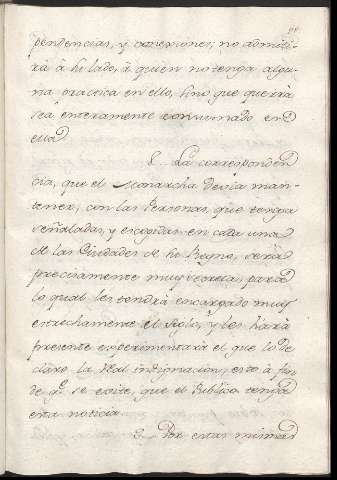 pendencias, y conexiones; no admiti-
rà à su lado, à quien no tenga algu-
na practica en ello, sino que querrà
sea enteramente consumado en
ella
La corresponden
cia, que el Monarcha devia man-
tener, con las Personas, que tenga
señaladas, y escogidas en cada una
de las Ciudades de su Reyno, serà
precisamente muy secreta, para
lo qual les tendrà encargado muy
estrechamente el sigilo, y les harà
presente experimentarà el que lo de
clare la Real indignacion; esto à fin
de q.e se evite, que el Publico tenga
esta noticia
Por estas mismas